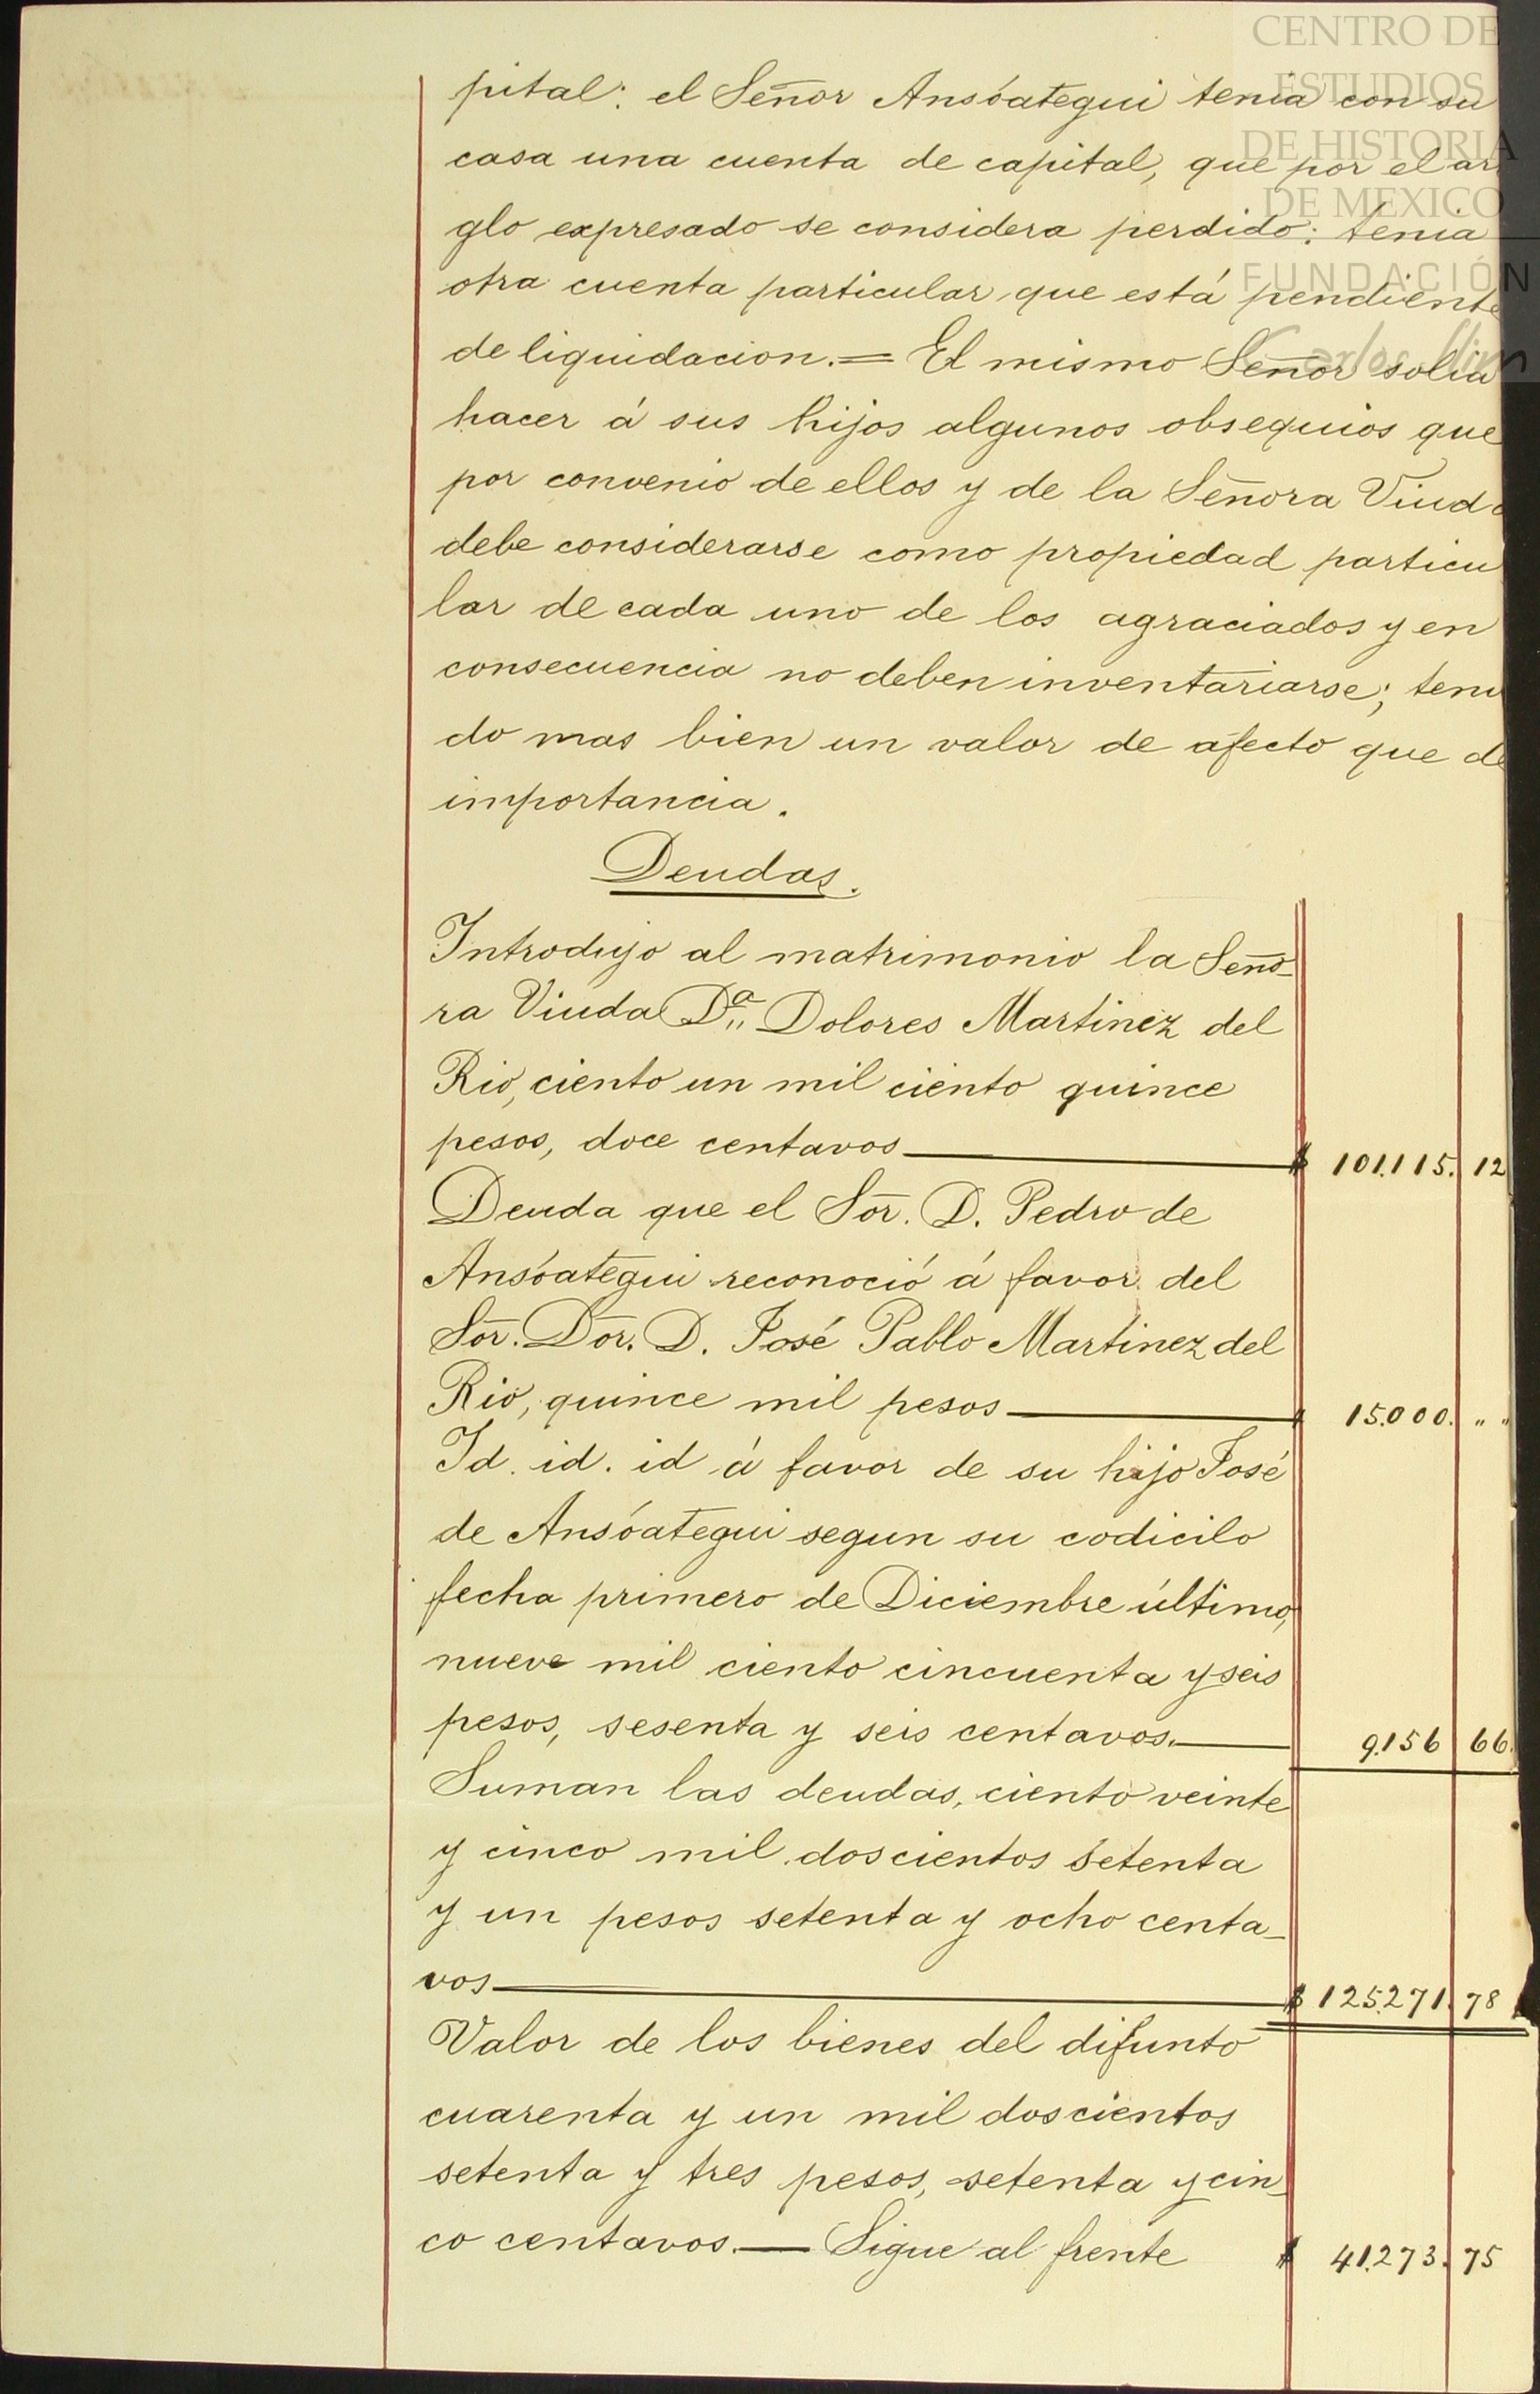 CENTRO DE
ESTUDIOS
DE HISTORIA
DE MEXICO
FUNDACIÓN
pital: el Señor Ansóategui tenia con su
casa una cuenta de capital, que por el ar
glo expresado se considera perdido: tenia
otra cuenta particular que está pendiente
de liquidacion.= El mismo Señor solia
hacer á sus hijos algunos obsequios que
por convenio de ellos y de la Señora Viuda
debe considerarse como propiedad particu
lar de cada uno de los agraciados y en
consecuencia no deben inventariarse; teni
do mas bien un valor de afecto que de
importancia.
Deudas.
Introdujo al matrimonio la Seño-
ra Viuda Dª Dolores Martinez del
Rio, ciento un mil ciento quince
pesos, doce centavos $ 101.115. 12
Deuda que el Sor. D. Pedro de
Ansóategui reconoció á favor del
Sor. Dor. D. José Pablo Martinez del
Rio, quince mil pesos $ 15.000. " "
Id. id. id á favor de su hijo José
de Ansóategui segun su codicilo
fecha primero de Diciembre último,
nueve mil ciento cincuenta y seis
pesos, sesenta y seis centavos. 9.156 66.
Suman las deudas, ciento veinte
y cinco mil doscientos setenta
y un pesos setenta y ocho centa-
vos $ 125.271. 78
Valor de los bienes del difunto
cuarenta y un mil doscientos
setenta y tres pesos, setenta y cin-
co centavos.— Sigue al frente $ 41.273. 75